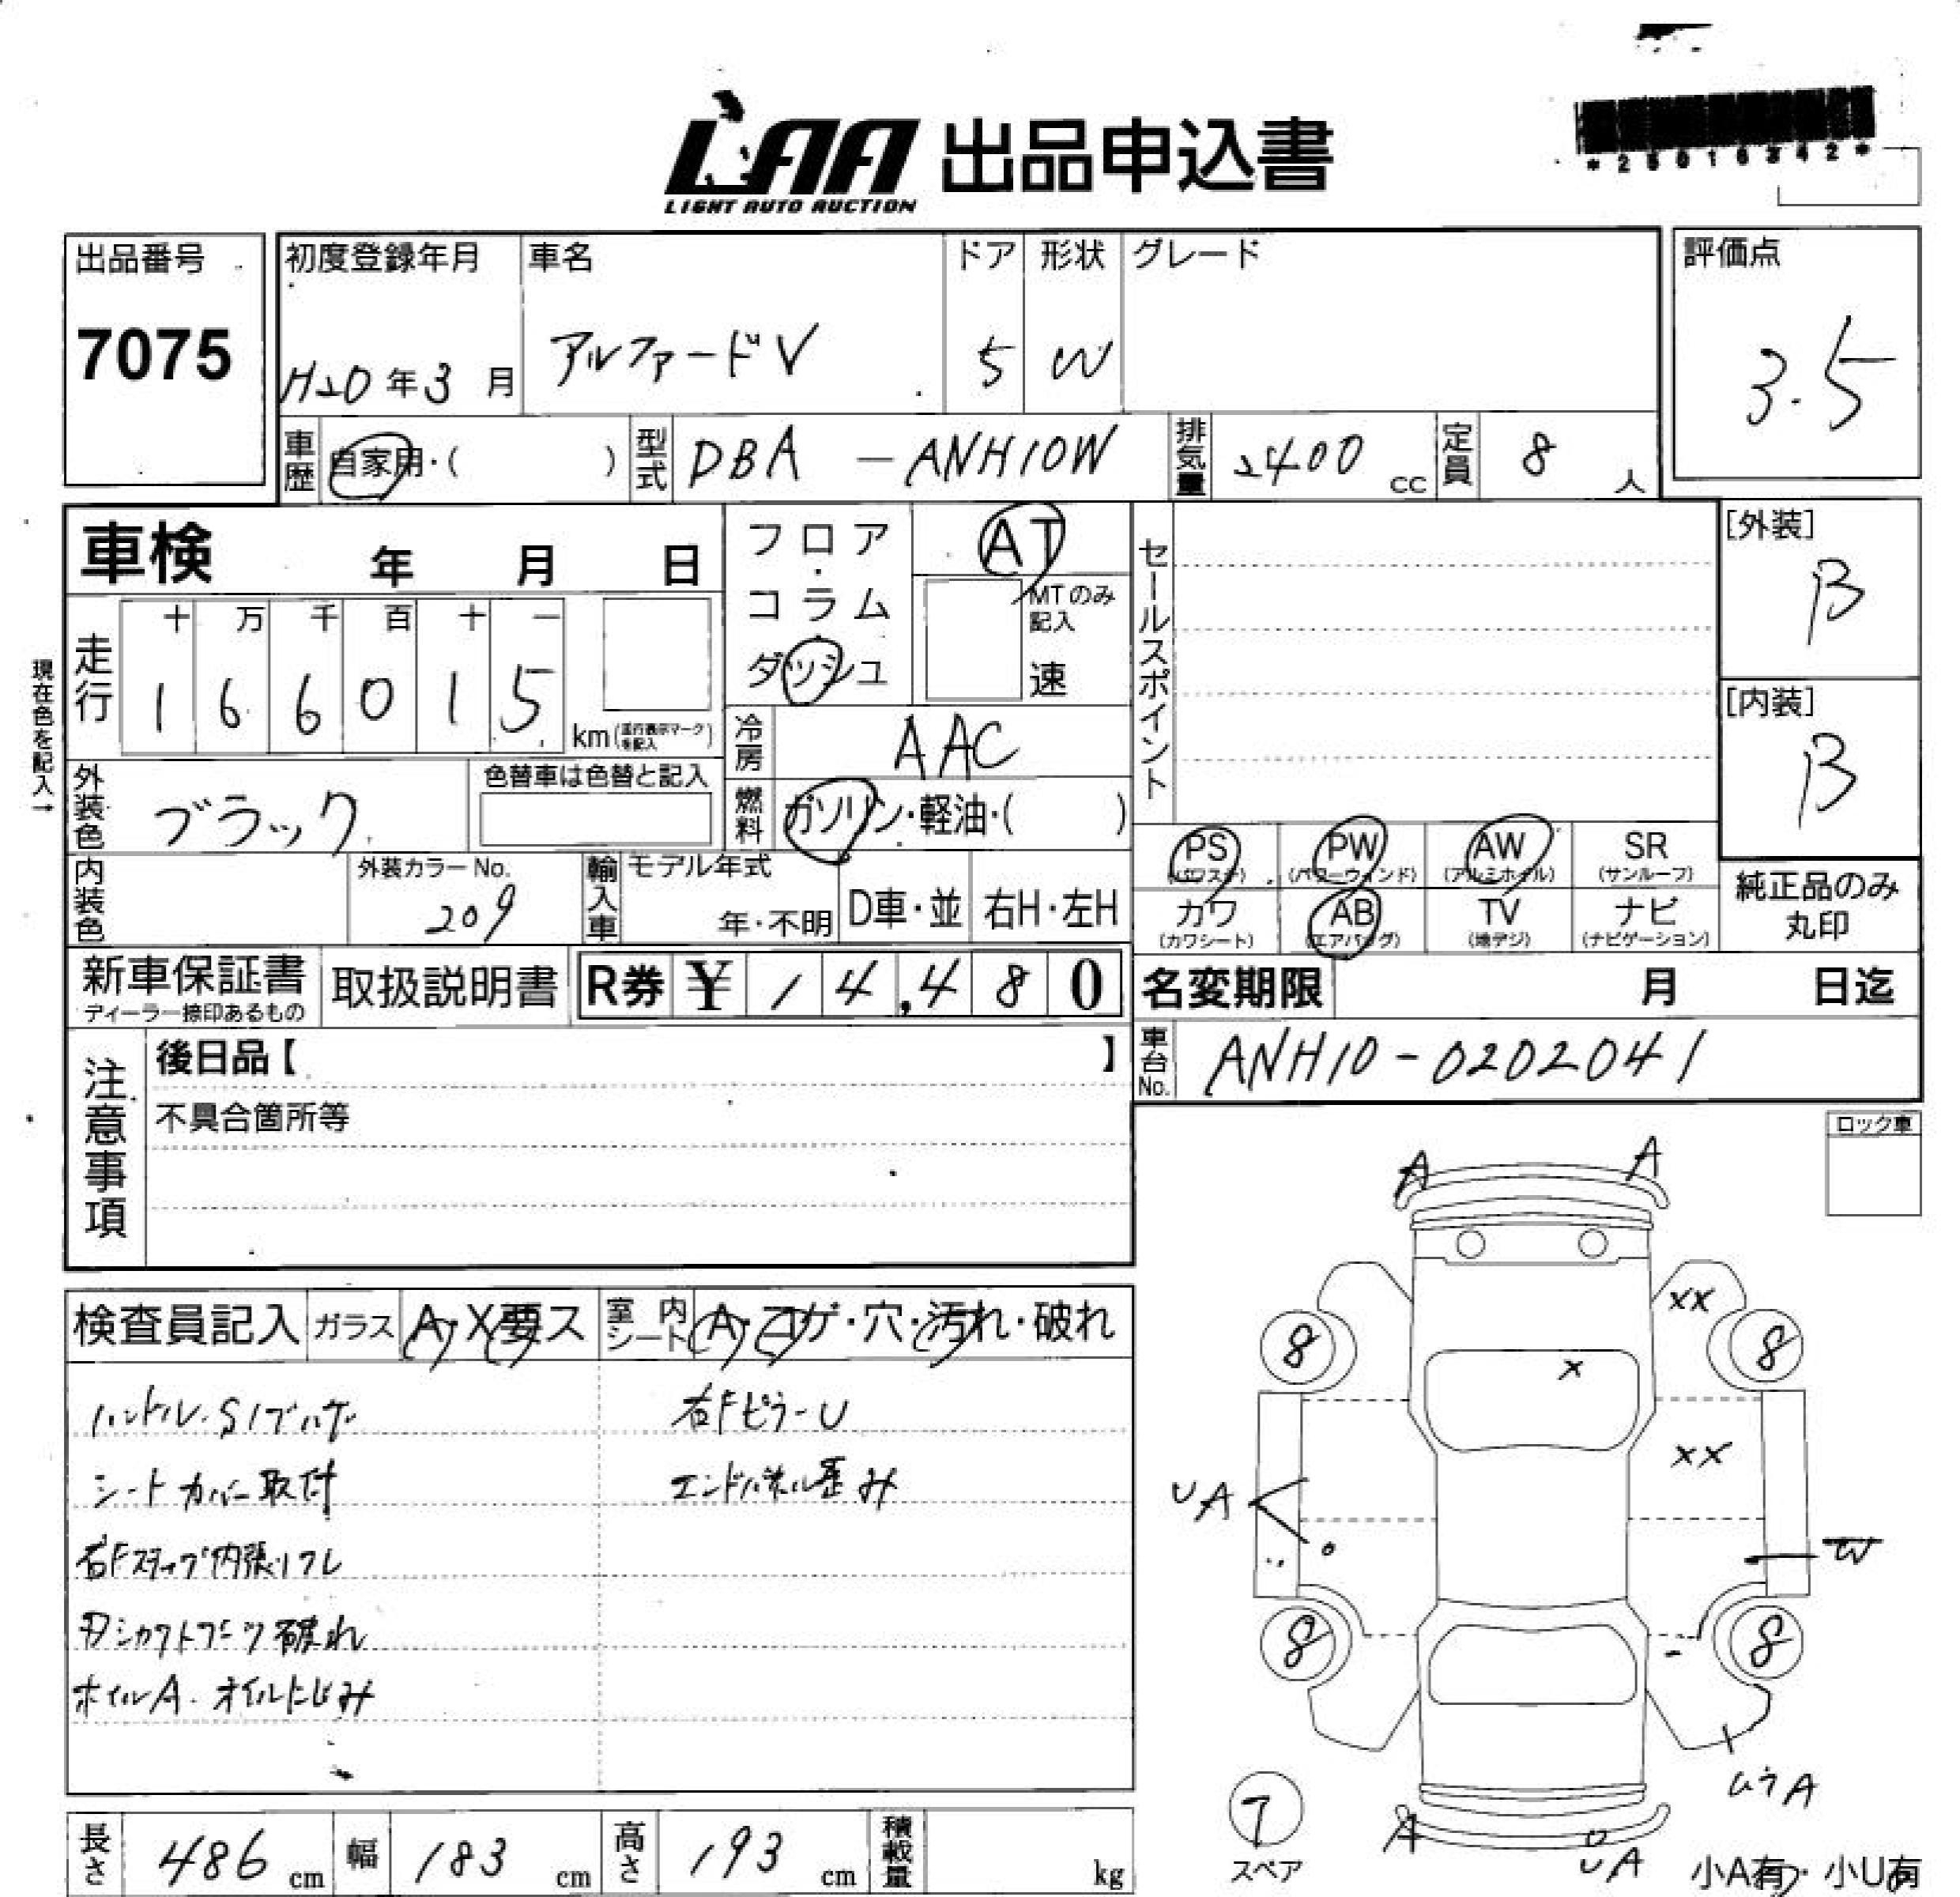 LAA 出品申込書
LIGHT AUTO AUCTION
*25016342*
出品番号
7075
初度登録年月
H20年3月
車名
アルファードV
ドア
5
形状
W
グレード
評価点
3.5
車歴
自家用・( )
型式
DBA-ANH10W
排気量
2400 cc
定員
8 人
車検 年 月 日
フロア・コラム
ダッシュ
AT
MTのみ記入
速
セールスポイント
[外装]
B
[内装]
B
現在色を記入→
走行
十 万 千 百 十 一
1 6 6 0 1 5
km(走行表示マークを記入)
冷房
AAC
外装色
ブラック
色替車は色替と記入
燃料
ガソリン・軽油・( )
内装色
外装カラーNo.
209
輸入車
モデル年式
年・不明
D車・並
右H・左H
PS
(パワステ)
PW
(パワーウィンド)
AW
(アルミホイル)
SR
(サンルーフ)
カワ
(カワシート)
AB
(エアバッグ)
TV
(地デジ)
ナビ
(ナビゲーション)
純正品のみ
丸印
新車保証書
ディーラー捺印あるもの
取扱説明書
R券 ¥ 14,480
名変期限 月 日迄
車台No.
ANH10-0202041
注意事項
後日品【 】
不具合箇所等
ロック車
検査員記入
ガラス A・X要ス
室内シート A・コゲ・穴・汚れ・破れ
ハンドル・Sノブハゲ
右FピラーU
シートカバー取付
エンドパネル歪み
右Fステップ内張リワレ
破れ
ホイルA. オイルにじみ
A A
XX
8 8
X
XX
UA
W
8 8
ムラA
7
スペア
A
UA
小A有・小U有
長さ 486 cm
幅 183 cm
高さ 193 cm
積載量 kg